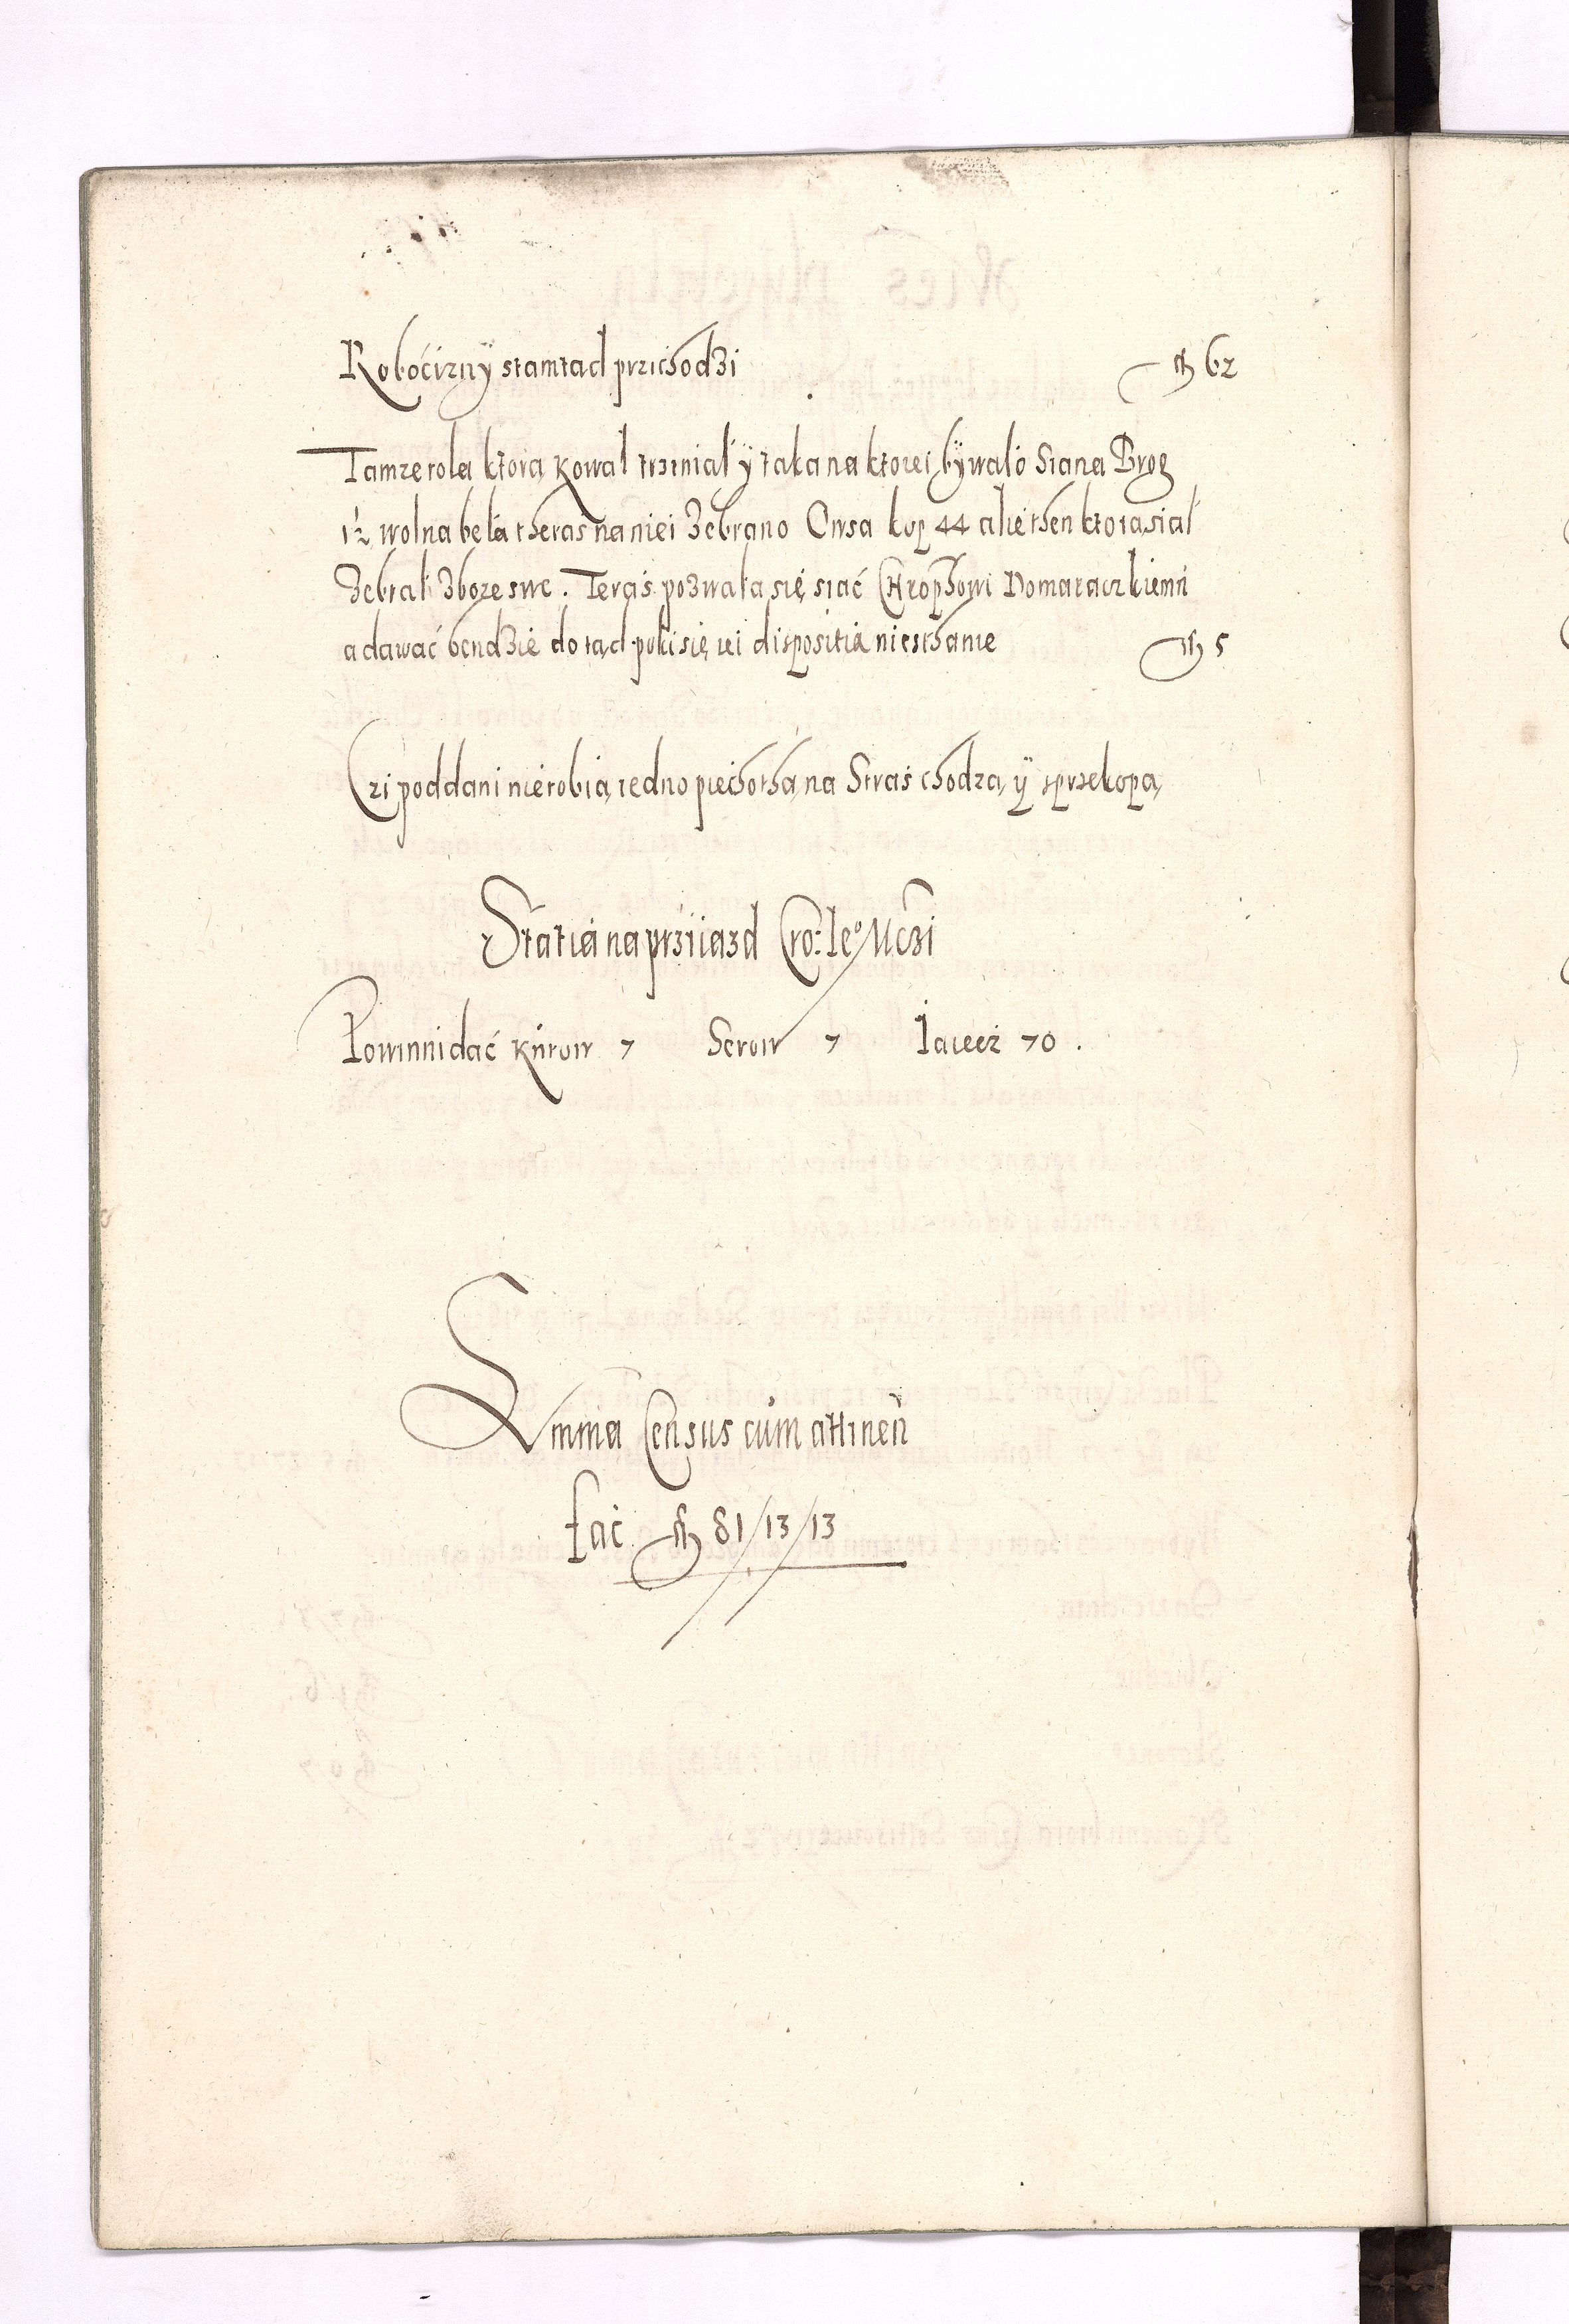 Roboćizny stamtad przichodzi fl 62
Tamze rola ktora kowal trzimał y łaka na ktorei bywało Siana Brog
1½ wolna beła theras na niei zebrano Owsa kop 44 alie then kto ia siał
zebrał zboze swe. Teras pozwala się siać Chropsowi Domaraczkiemu
a dawać bendzie do tąd poki się iei dispositia nie sthanie fl 5
Czi poddani nie robią iedno piechothą na Straś chodzą y sprzekopą
Statia na prziiazd Cro: Ieº Mczi
Powinni dać Kurow 7 Serow 7 Iaiecz 70.
Summa Census cum attinen
fac fl 81/13/13